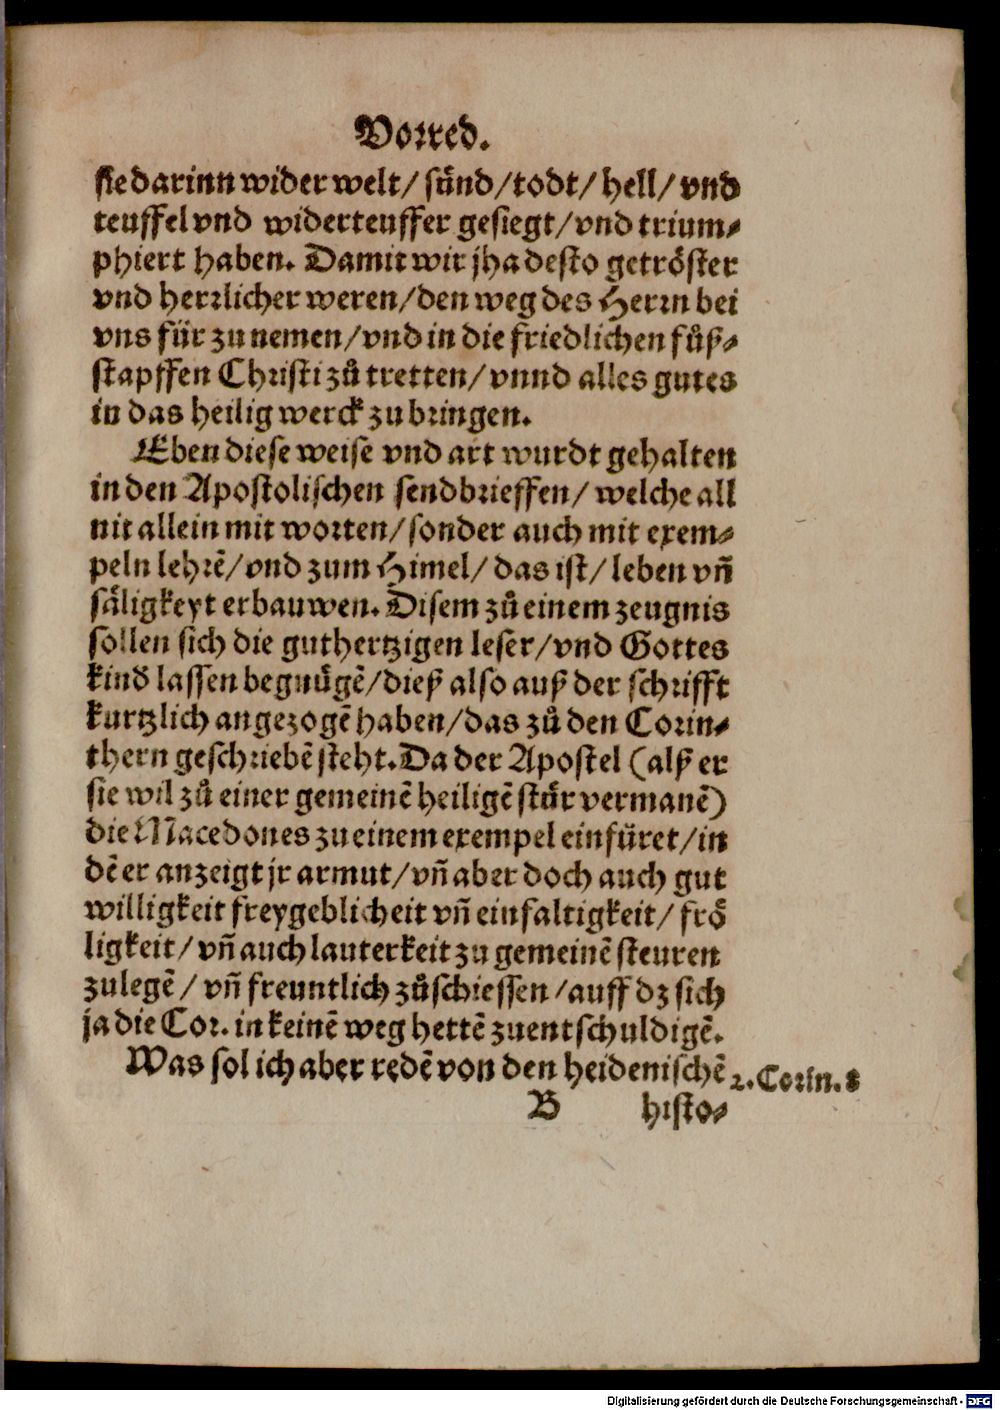 Vorred.
sie darinn wider welt/ sünd/ todt/ hell/ vnd
teuffel vnd widerteuffer gesiegt/ vnd trium⸗
phiert haben. Damit wir jha desto getröster
vnd herrlicher weren/ den weg des Herrn bei
vns für zu nemen/ vnd in die friedlichen fůß⸗
stapffen Christi zů tretten/ vnnd alles gutes
in das heilig werck zu bringen.
Eben diese weise vnd art wurdt gehalten
in den Apostolischen sendbrieffen/ welche all
nit allein mit worten/ sonder auch mit exem⸗
peln lehrē/ vnd zum Himel/ das ist/ leben vñ
säligkeyt erbauwen. Disem zů einem zeugnis
sollen sich die guthertzigen leser/ vnd Gottes
kind lassen begnügē/ dieß also auß der schrifft
kurtzlich angezogē haben/ das zů den Corin⸗
thern geschriebē steht. Da der Apostel (alß er
sie wil zů einer gemeinē heiligē stür vermanē)
die Macedones zu einem exempel einfüret/ in
dē er anzeigt jr armut/ vñ aber doch auch gut
willigkeit freygeblicheit vñ einfaltigkeit/ frö
ligkeit/ vñ auch lauterkeit zu gemeinē steuren
zulegē/ vñ freuntlich zůschiessen/ auff dz sich
ja die Cor. in keinē weg hettē zuentschuldigē.
Was sol ich aber redē von den heidenischē
2. Corin. 8
B histo⸗
Digitalisierung gefördert durch die Deutsche Forschungsgemeinschaft - DFG